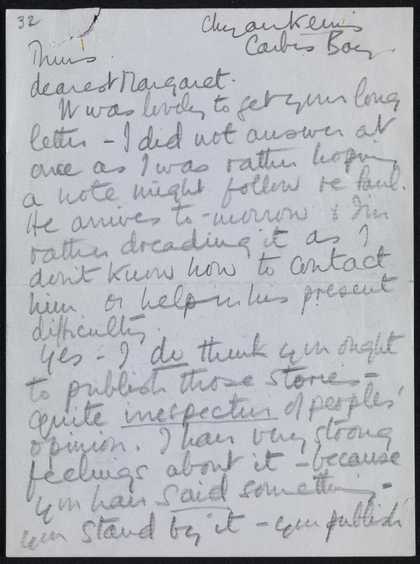 32
Chy an Kerris
Carbis Bay.
Thurs.
dearest Margaret.
It was lovely to get your long
letter – I did not answer at
once as I was rather hoping
a note might follow re Paul.
He arrives to-morrow & I'm
rather dreading it as I
don't know how to contact
him or help in his present
difficulty.
Yes – I do think you ought
to publish those stories –
quite irrespective of peoples'
opinion. I have very strong
feelings about it – because
you have said something –
you stand by it – you publish